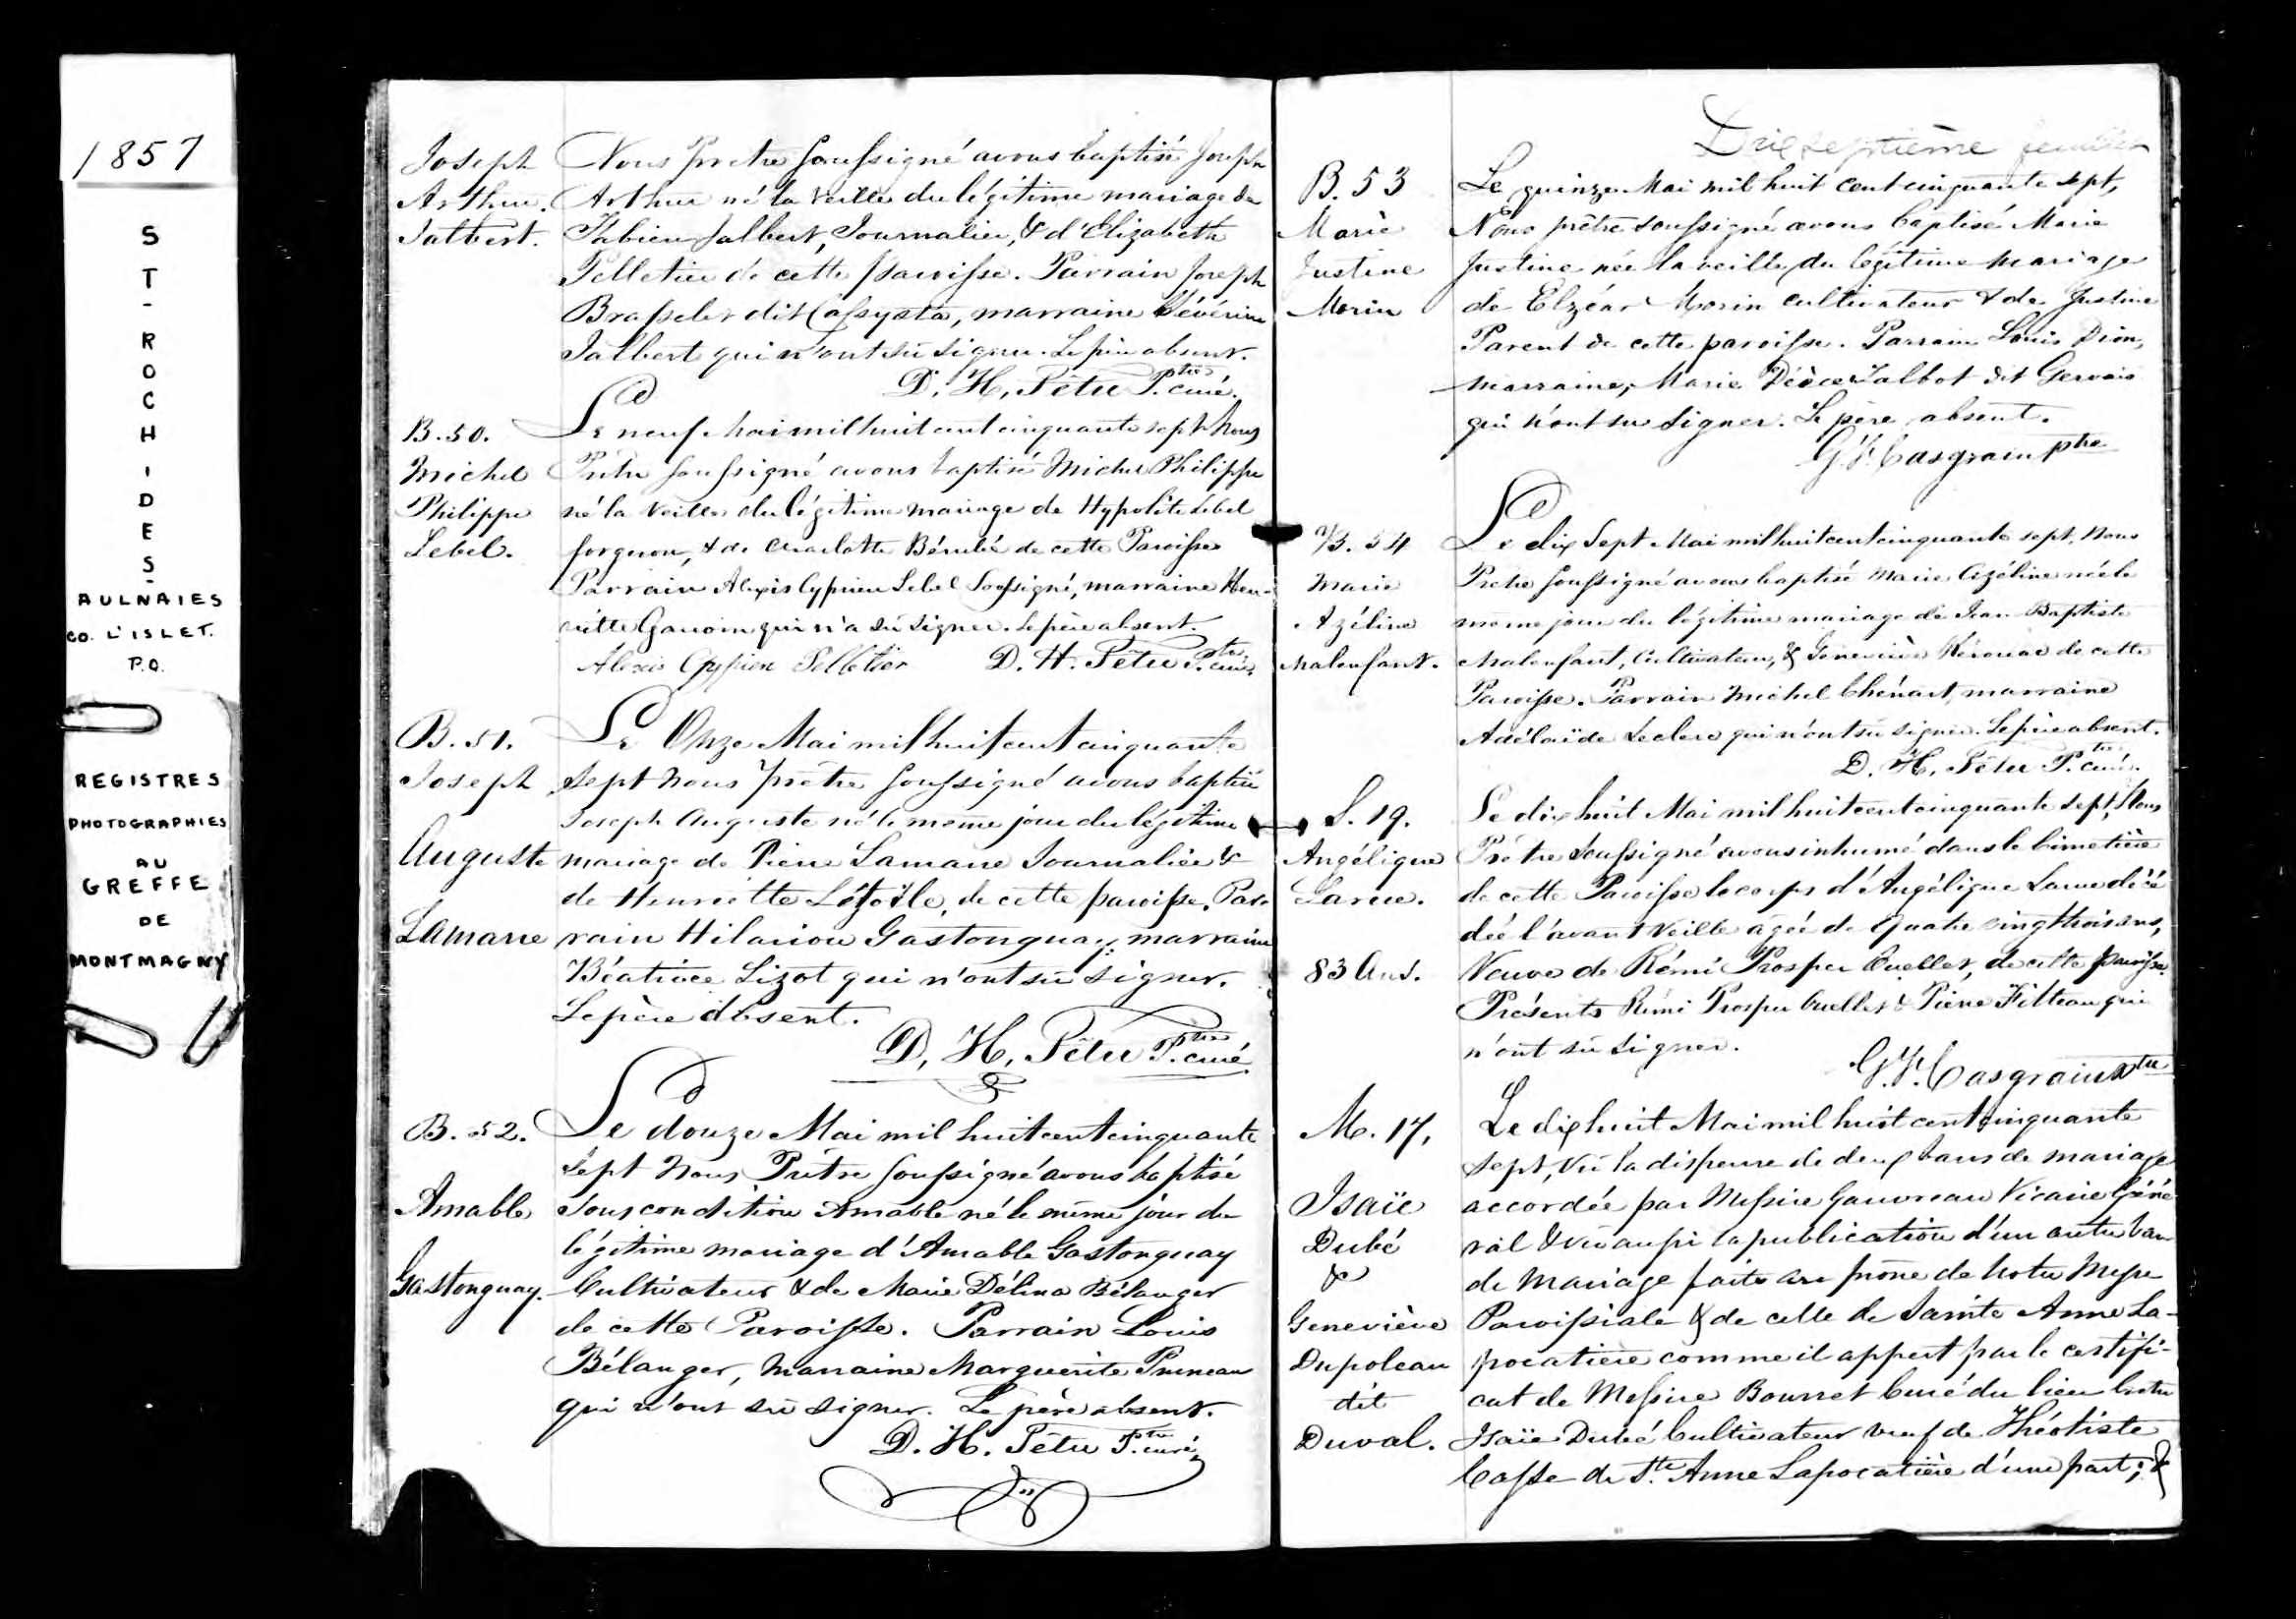 1857
ST-ROCH-DES-
AULNAIES
CO. L'ISLET.
P.Q.
REGISTRES
PHOTOGRAPHIES
AU
GREFFE
DE
MONTMAGNY
Joseph
Arthur
Jalbert.
Nous Prêtre soussigné avons baptisé Joseph
Arthur né la veille du légitime mariage de
Fabien Jalbert, Journalier, & d'Elizabeth
Pelletier de cette paroisse. Parrain Joseph
dit marraine Sévérine
Jalbert qui n'ont su signer. Le père absent.
D. H. Têtu Ptre curé.
B. 50.
Michel
Philippe
Lebel.
Le neuf Mai mil huit cent cinquante sept Nous
Prêtre soussigné avons baptisé Michel Philippe
né la veille du légitime mariage de Hypolite Lebel
forgeron, & de Charlotte Bérubé de cette Paroisse
Parrain Alexis Cyprien Lebel Soussigné, marraine Hen-
riette qui n'a su signer. Le père absent.
Alexis Cyprien Pelletier D. H. Têtu Ptre curé
B. 51.
Joseph
Auguste
Lamarre
Le Onze Mai mil huit cent cinquante
sept Nous prêtre soussigné avons baptisé
Joseph Auguste né le même jour du légitime
mariage de Pierre Lamarre Journalier &
de Henriette Létoile, de cette paroisse. Par-
rain Hilarion Gastonguay, marraine
Béatrice Lizot qui n'ont su signer.
Le père absent.
D. H. Têtu Ptre curé
B. 52.
Amable
Gastonguay.
Le douze Mai mil huit cent cinquante
sept Nous Prêtre soussigné avons baptisé
sous condition Amable né le même jour du
légitime mariage d'Amable Gastonguay
Cultivateur & de Marie Délina Bélanger
de cette Paroisse. Parrain Louis
Bélanger, Marraine Marguerite Pruneau
qui n'ont su signer. Le père absent.
D. H. Têtu Ptre curé
Dix septième feuillet
B. 53
Marie
Justine
Morin
Le quinze Mai mil huit cent cinquante sept,
Nous prêtre soussigné avons baptisé Marie
Justine née la veille du légitime mariage
de Elzéar Morin cultivateur & de Justine
Parent de cette paroisse. Parrain Louis Dion,
marraine, Marie Talbot dit Gervais
qui n'ont su signer. Le père absent.
G. F. Casgrain ptre
B. 54
Marie
Azéline
Malenfant.
Le dix Sept Mai mil huit cent cinquante sept, Nous
Prêtre soussigné avons baptisé Marie Azéline née le
même jour du légitime mariage de Jean Baptiste
Malenfant, Cultivateur, & Geneviève Kérouac de cette
Paroisse. Parrain Michel Chénart, marraine
Adélaïde Leclerc qui n'ont su signer. Le père absent.
D. H. Têtu Ptre curé.
S. 19.
Angélique
Larue.
83 Ans.
Le dix huit Mai mil huit cent cinquante sept, Nous
Prêtre soussigné avons inhumé dans le Cimetière
de cette Paroisse le corps d'Angélique Larue décé
dée l'avant veille agée de Quatre vingt trois ans,
Veuve de Rémi Prosper Ouellet, de cette paroisse.
Présents Rémi Prosper Ouellet & Pierre Filteau qui
n'ont su signer.
G. F. Casgrain ptre
M. 17,
Isaïe
Dubé
&
Geneviève
Dupoleau
dit
Duval.
Le dix huit Mai mil huit cent cinquante
sept, Vu la dispense de deux bans de mariage
accordée par Messire Gauvreau Vicaire Géné
ral & vu aussi la publication d'un autre ban
de Mariage faite au prône de notre Messe
Paroissiale & de celle de Sainte Anne La-
pocatière comme il appert par le certifi-
cat de Messire Bourret Curé du lieu Entre
Isaïe Dubé Cultivateur veuf de Théotiste
Casse de Ste. Anne Lapocatière d'une part; &